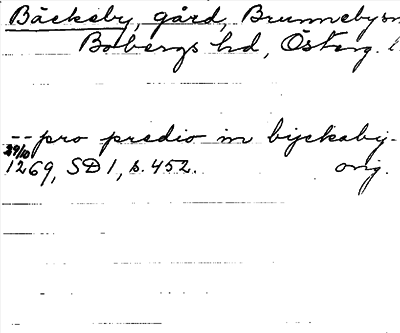 Bäckeby, gård, Brunneby sn
Bobergs hd, Österg. l.
-- pro predio in byckaby.
29/10
1269, SD 1, s. 452. orig.